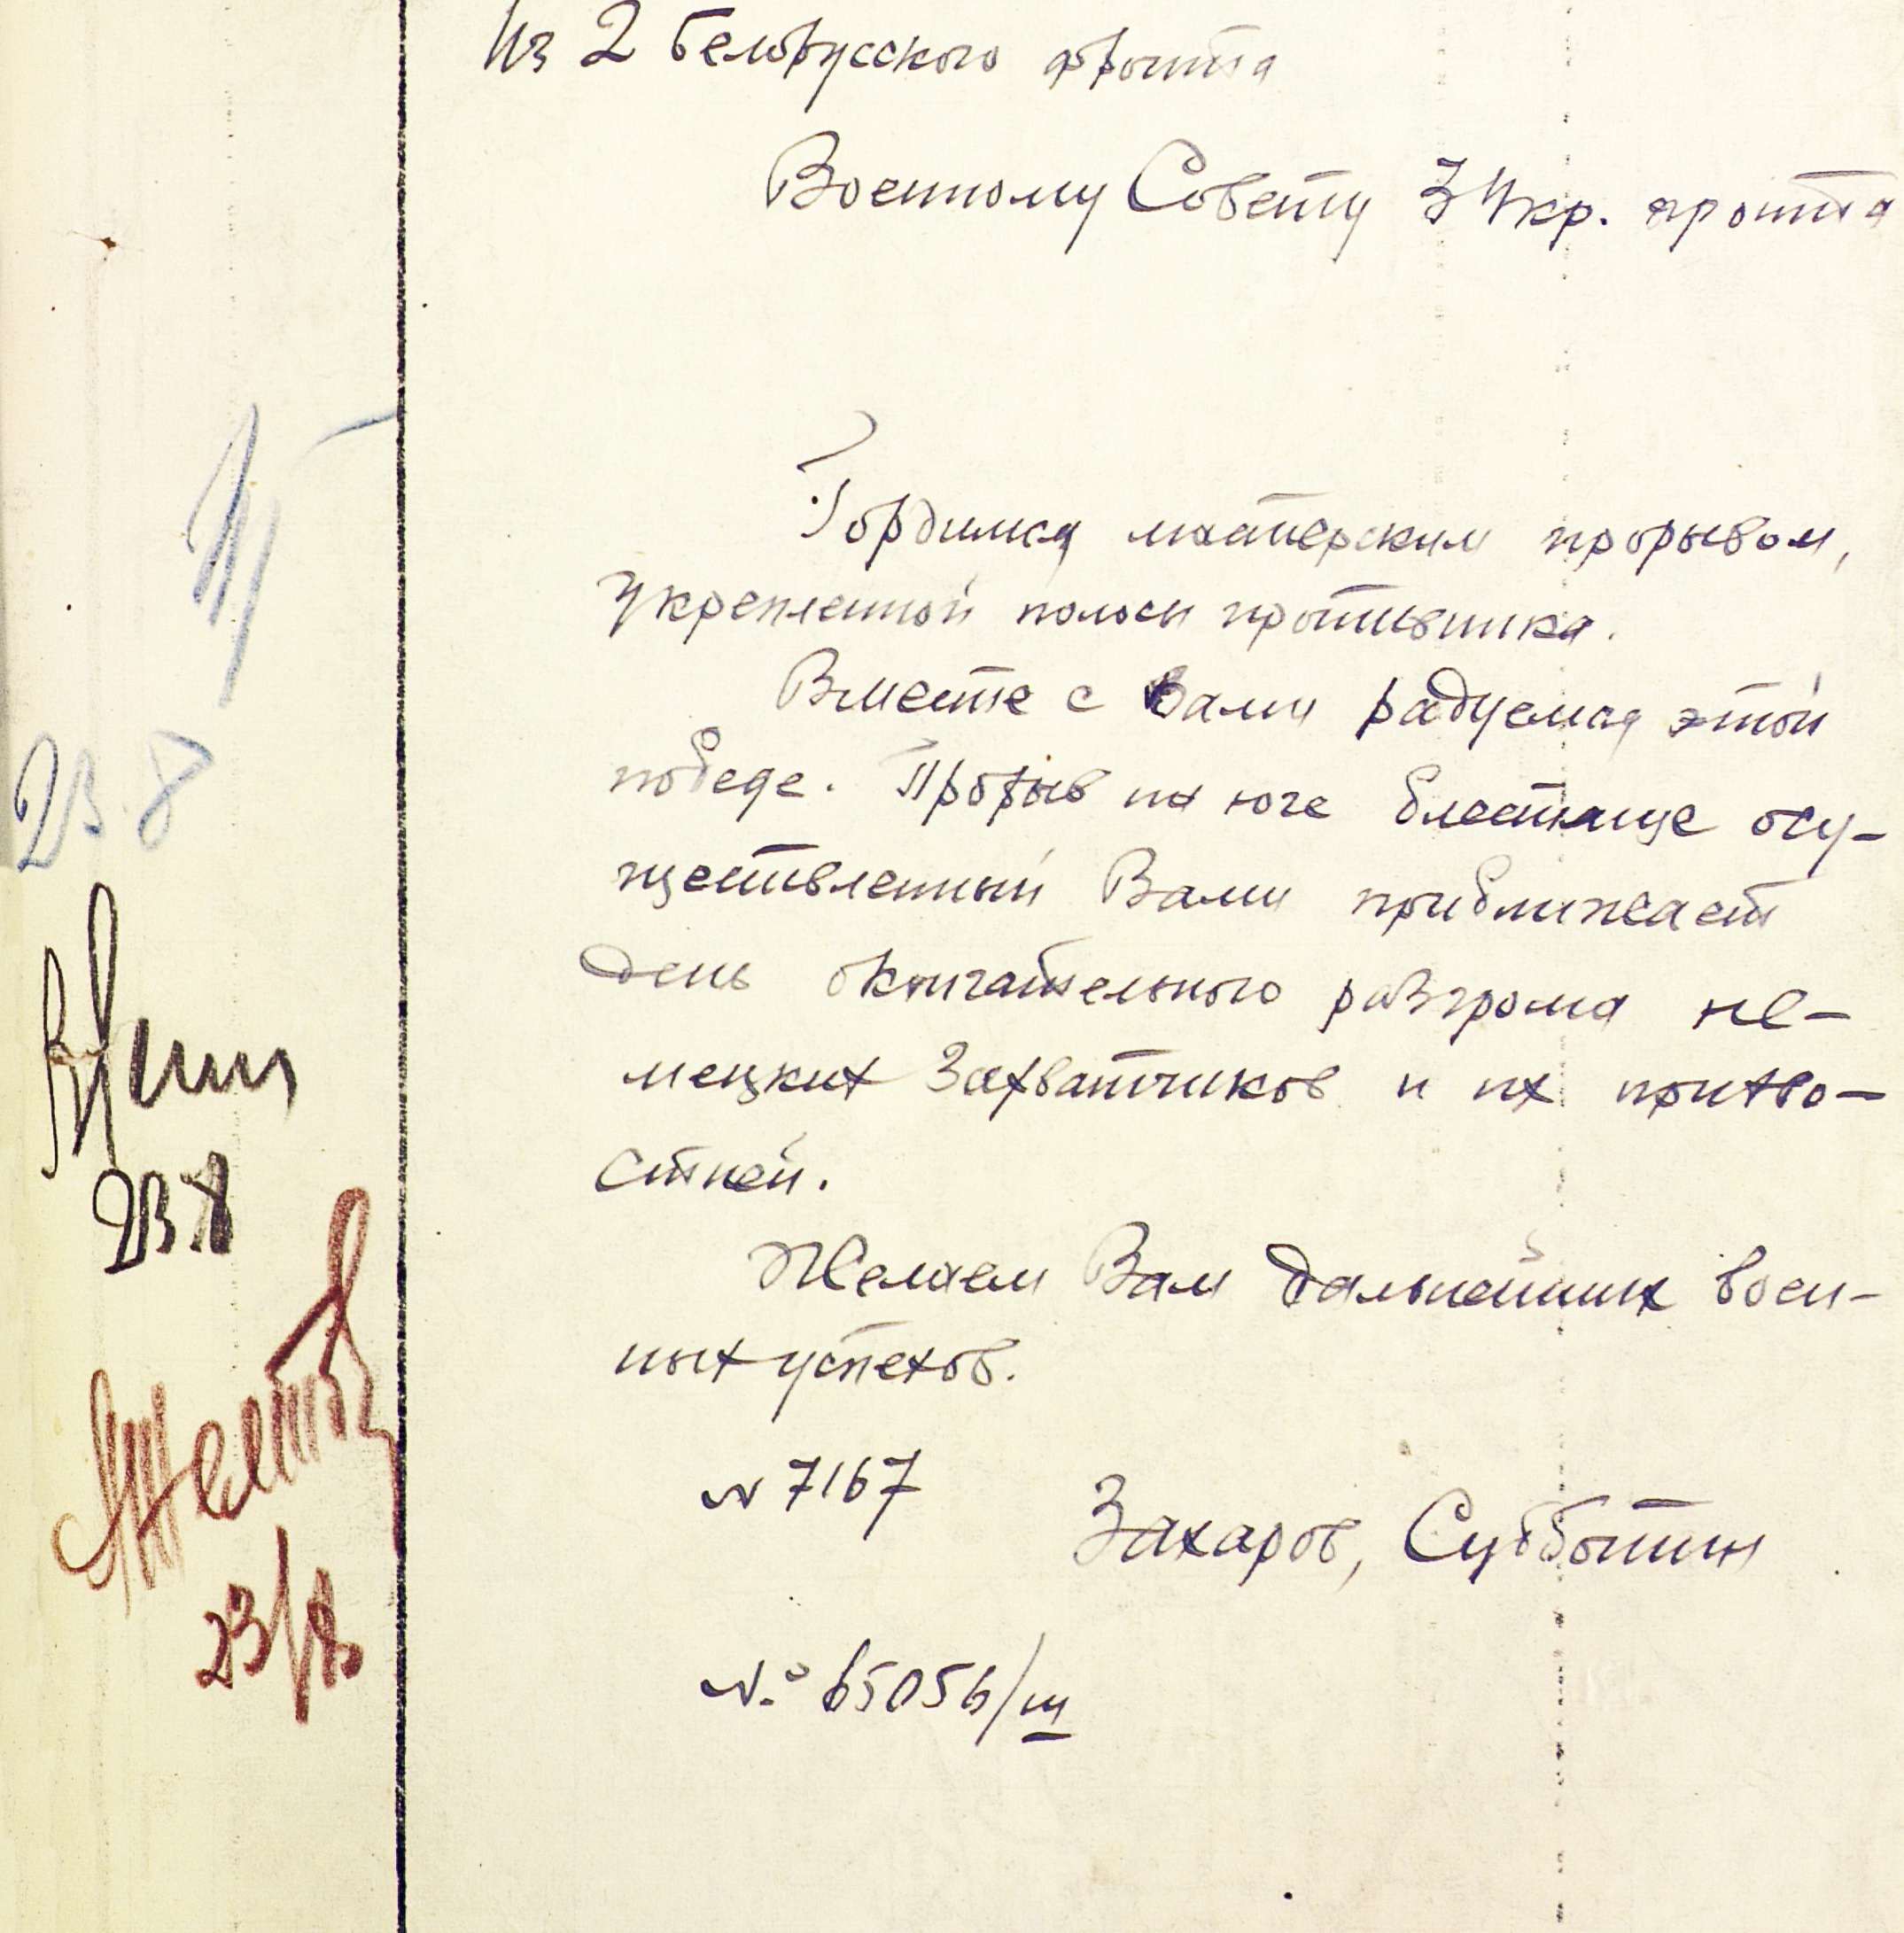 Из 2 Белорусского фронта
Военному Совету 3 Укр. фронта
Гордимся мастерским прорывом,
укрепленной полосы противника.
Вместе с Вами радуемся этой
победе. Прорыв на юге блестяще осу-
ществленный Вами приближает
день окончательного разгрома не-
мецких захватчиков и их прихво-
стней.
Желаем Вам дальнейших воен-
ных успехов.
N 7167
Захаров, Субботин
№ 65056/ш
23.8
23.8
Желтов
23/8